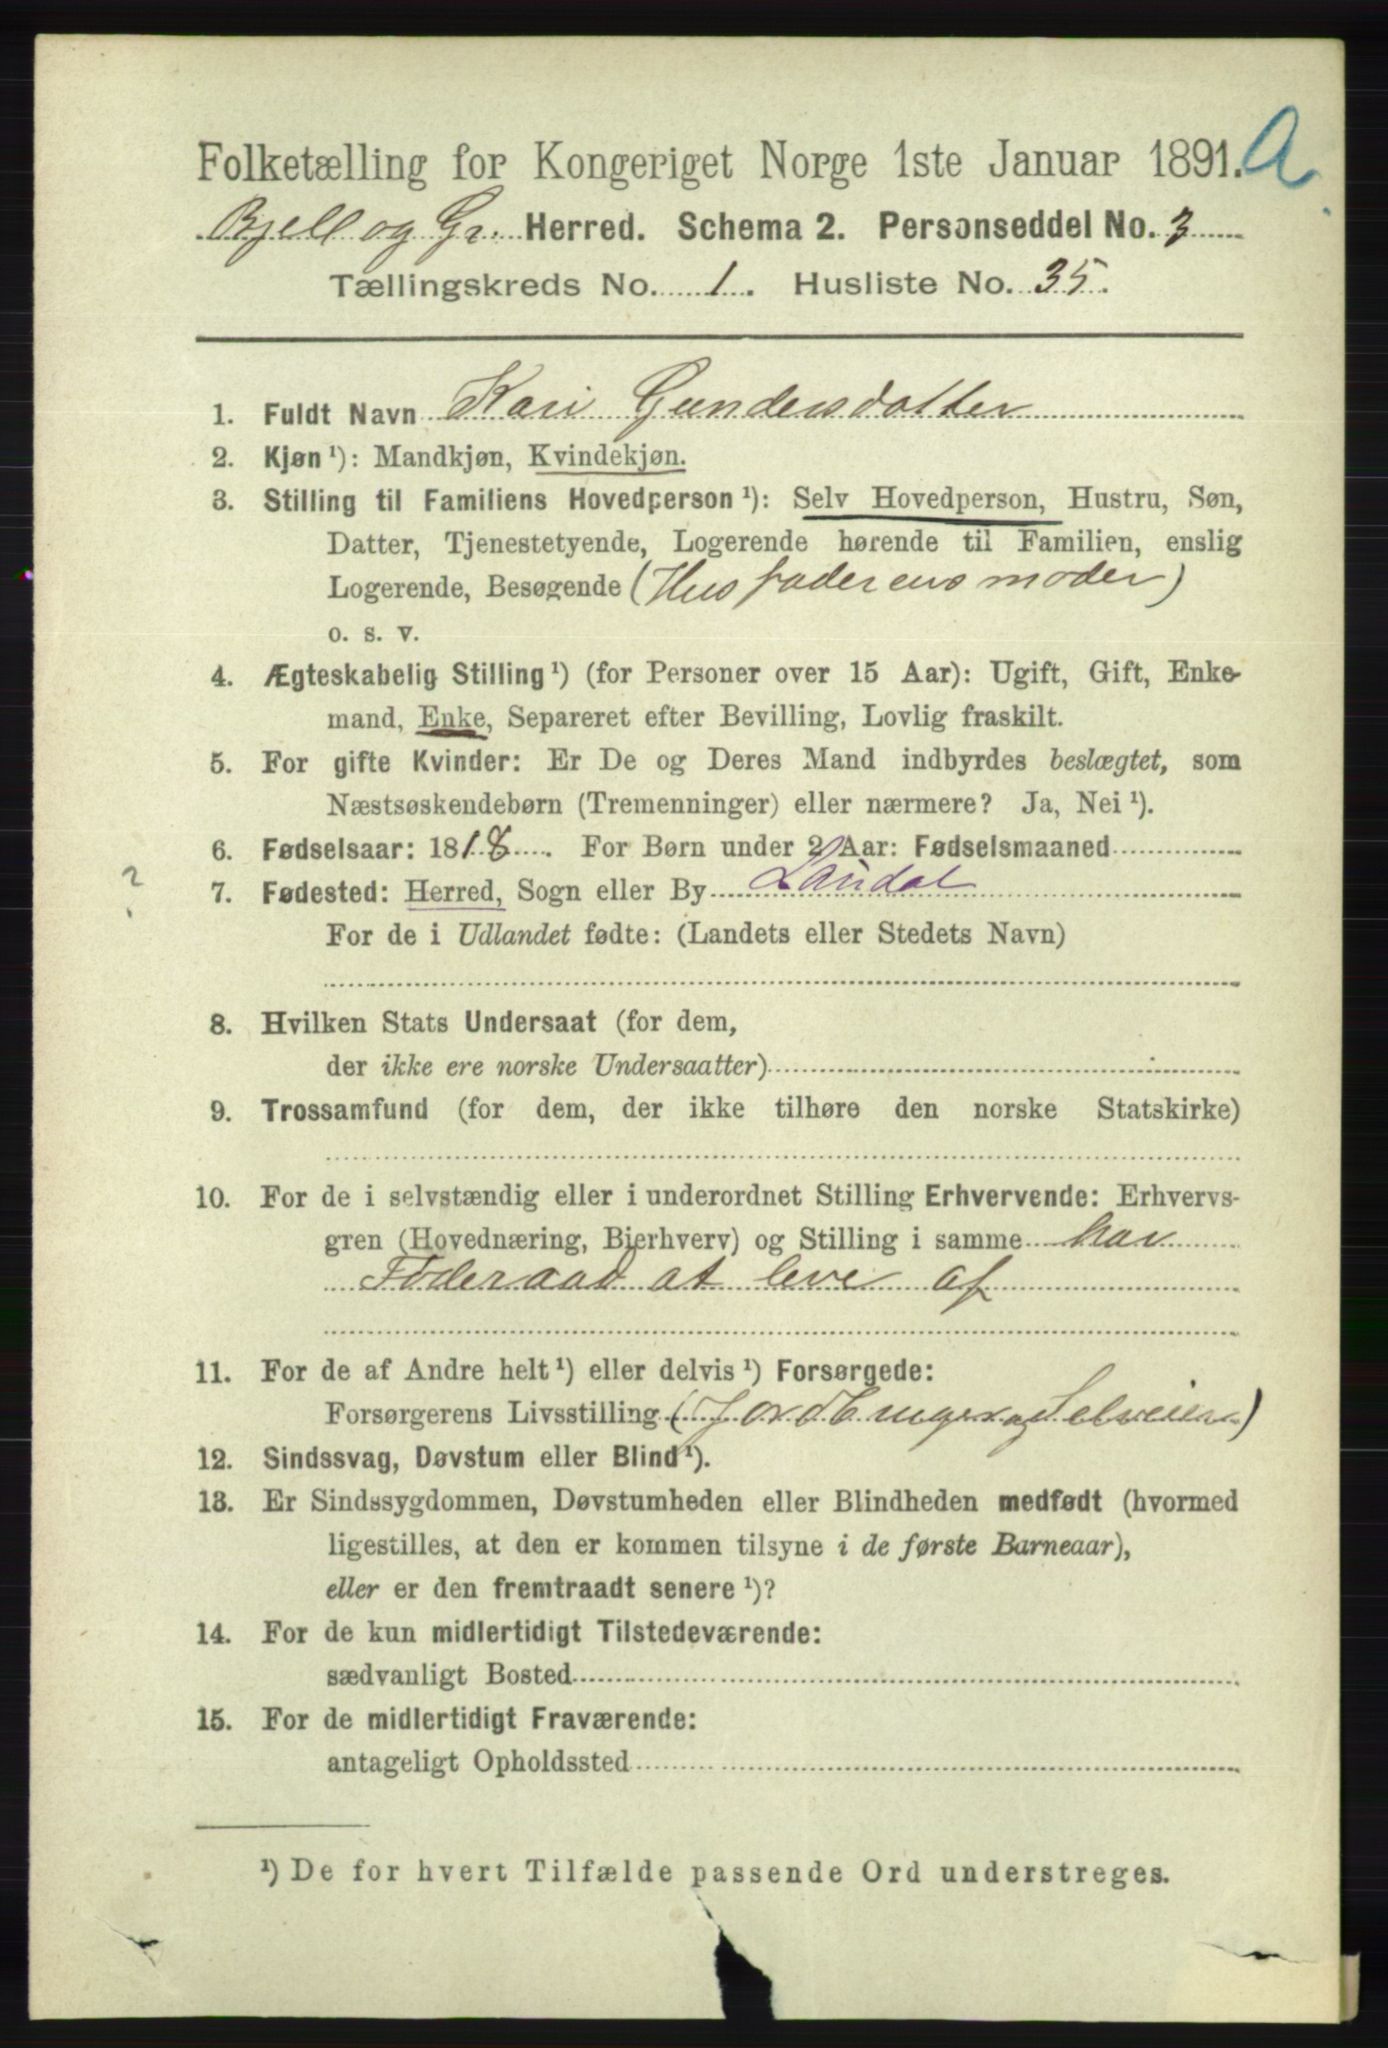 Folketælling for Kongeriget Norge 1ste Januar 1891. A
Bjell og Gr. Herred. Schema 2. Personseddel No. 3
Tællingskreds No. 1. Husliste No. 35.
1. Fuldt Navn Kari Gundersdatter
2. Kjøn ¹): Mandkjøn, Kvindekjøn.
3. Stilling til Familiens Hovedperson ¹): Selv Hovedperson, Hustru, Søn,
Datter, Tjenestetyende, Logerende hørende til Familien, enslig
Logerende, Besøgende (Husfaderens moder)
o. s. v.
4. Ægteskabelig Stilling ¹) (for Personer over 15 Aar): Ugift, Gift, Enke-
mand, Enke, Separeret efter Bevilling, Lovlig fraskilt.
5. For gifte Kvinder: Er De og Deres Mand indbyrdes beslægtet, som
Næstsøskendebørn (Tremenninger) eller nærmere? Ja, Nei ¹).
6. Fødselsaar: 1818. For Børn under 2 Aar: Fødselsmaaned
? 7. Fødested: Herred, Sogn eller By Laudal
For de i Udlandet fødte: (Landets eller Stedets Navn)
8. Hvilken Stats Undersaat (for dem,
der ikke ere norske Undersaatter)
9. Trossamfund (for dem, der ikke tilhøre den norske Statskirke)
10. For de i selvstændig eller i underordnet Stilling Erhvervende: Erhvervs-
gren (Hovednæring, Bierhverv) og Stilling i samme har
Føderaad at leve af
11. For de af Andre helt ¹) eller delvis ¹) Forsørgede:
Forsørgerens Livsstilling (Jordbruger og Selveier)
12. Sindssvag, Døvstum eller Blind ¹).
13. Er Sindssygdommen, Døvstumheden eller Blindheden medfødt (hvormed
ligestilles, at den er kommen tilsyne i de første Barneaar),
eller er den fremtraadt senere ¹)?
14. For de kun midlertidigt Tilstedeværende:
sædvanligt Bosted
15. For de midlertidigt Fraværende:
antageligt Opholdssted
¹) De for hvert Tilfælde passende Ord understreges.